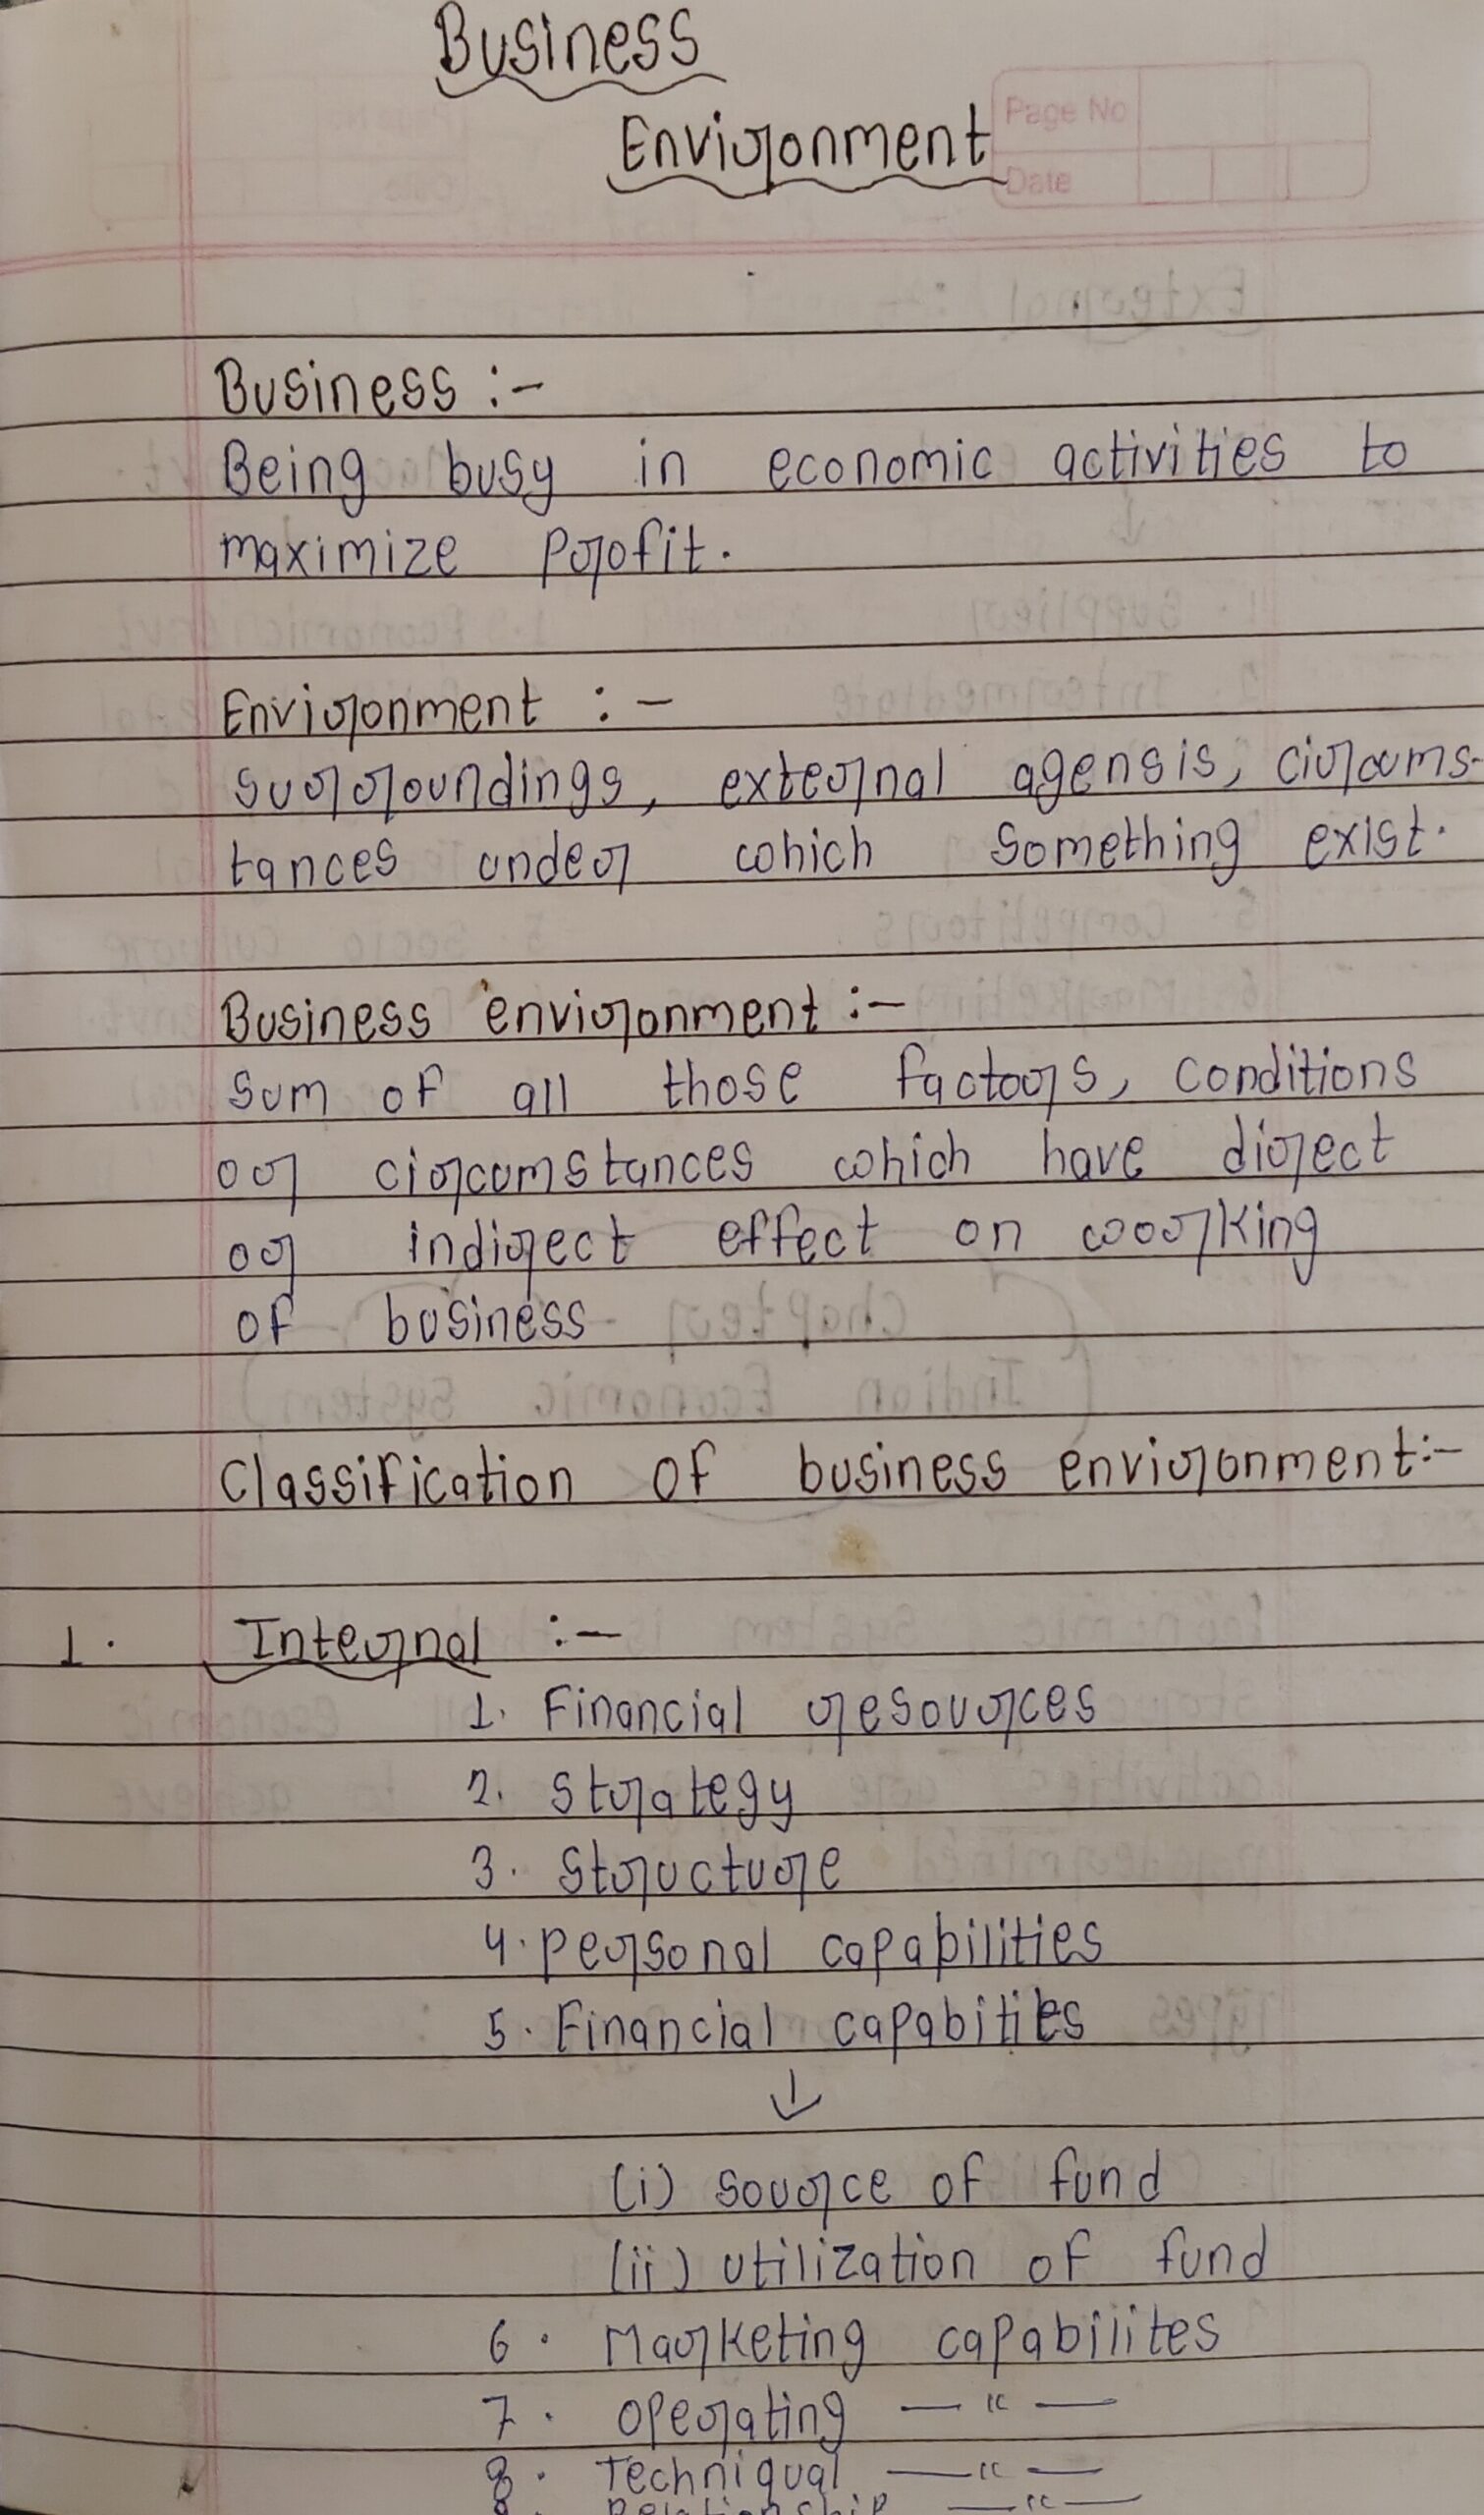 Business
Environment
Page No
Date
Business :-
Being busy in economic activities to
maximize Profit.
Environment :-
surroundings, external agensis, circums-
tances under which something exist.
Business environment :-
sum of all those factors, conditions
or circumstances which have direct
or indirect effect on working
of business
Classification of business environment:-
1. Internal :-
1. Financial resources
2. Strategy
3. Structure
4. Personal capabilities
5. Financial capabities
↓
(i) source of fund
(ii) utilization of fund
6. Marketing capabilites
7. Operating — " —
8. Techniqual — " —
Relationship — " —